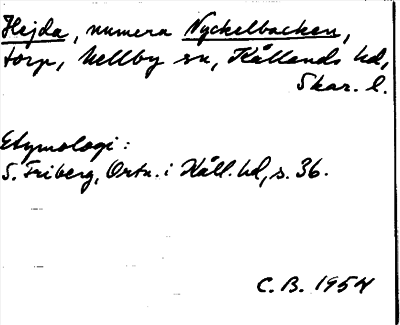 Hejda, numera Nyckelbacken,
torp, Mellby sn, Kållands hd,
Skar. l.
Etymologi:
S. Friberg, Ortn. i Kåll. hd, s. 36.
C. B. 1954